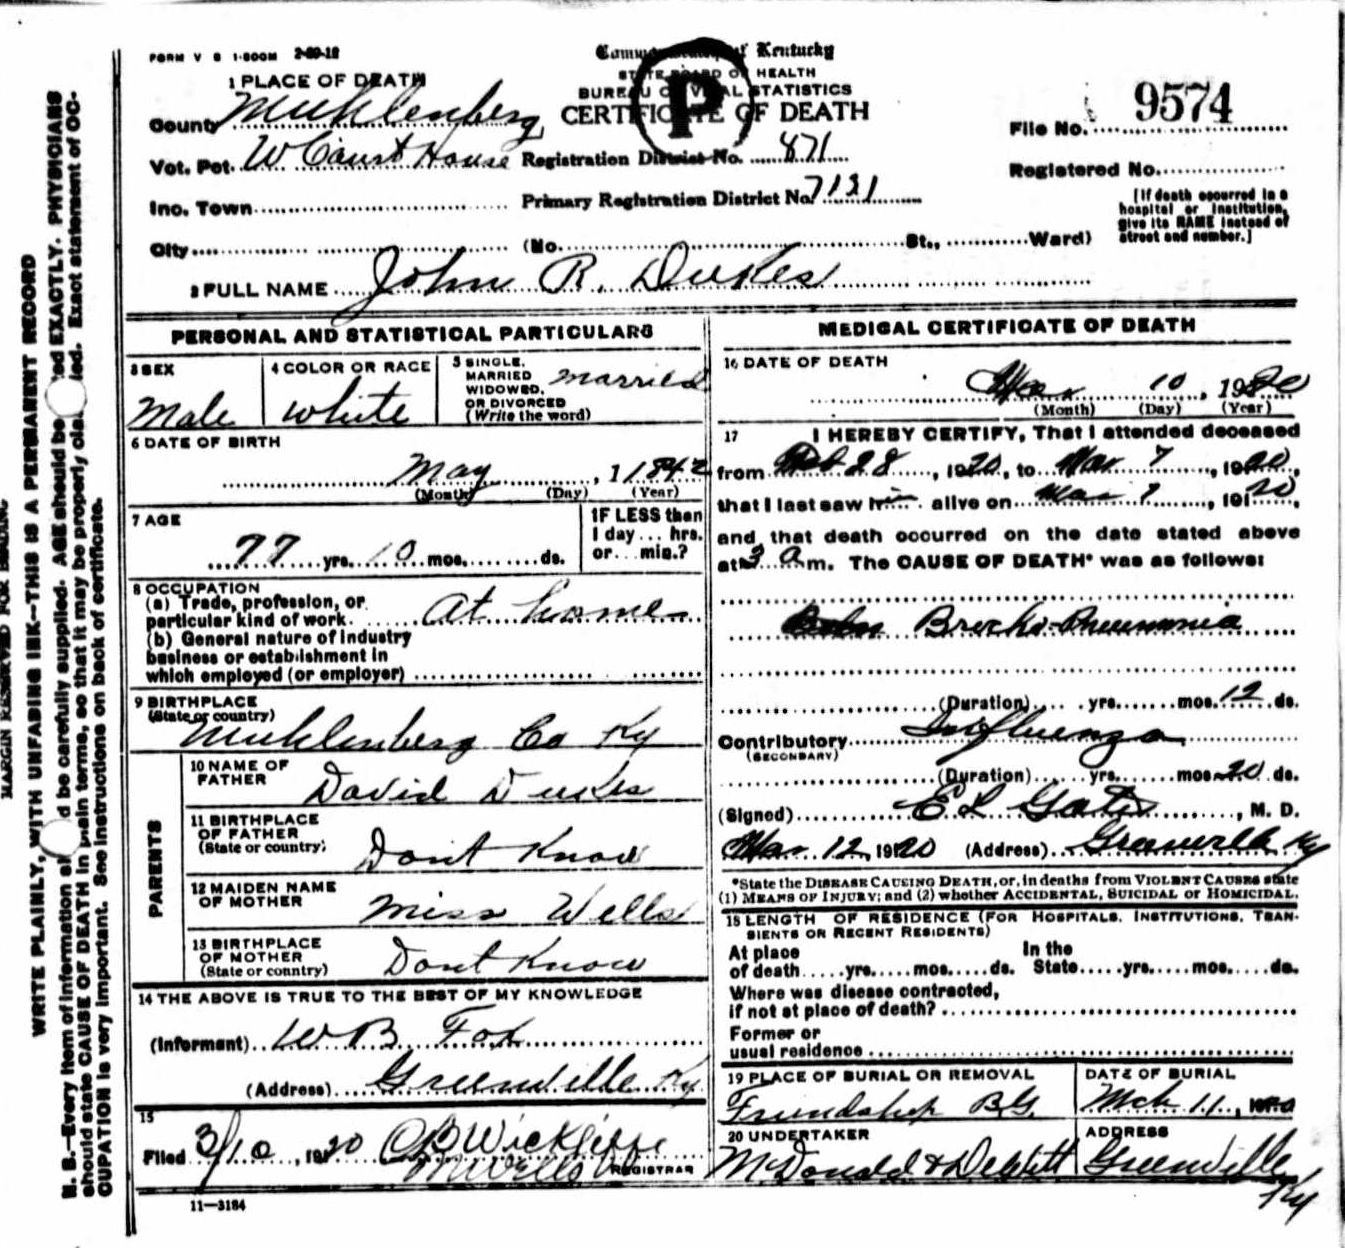 FORM V S 1-500M 2-20-18
Commonwealth of Kentucky
STATE BOARD OF HEALTH
BUREAU OF VITAL STATISTICS
CERTIFICATE OF DEATH
P
File No. 9574
Registered No.
[If death occurred in a hospital or institution, give its NAME instead of street and number.]
1 PLACE OF DEATH
County Muhlenberg
Vot. Pct. W Court House Registration District No. 871
Inc. Town Primary Registration District No. 7131
City (No. St., Ward)
2 FULL NAME John R. Dukes
PERSONAL AND STATISTICAL PARTICULARS
3 SEX Male
4 COLOR OR RACE White
5 SINGLE, MARRIED WIDOWED, OR DIVORCED (Write the word) Married
6 DATE OF BIRTH
May , 1 1842
(Month) (Day) (Year)
7 AGE
77 yrs. 10 mos. ds.
IF LESS than 1 day... hrs. or... min.?
8 OCCUPATION
(a) Trade, profession, or particular kind of work At home
(b) General nature of industry business or establishment in which employed (or employer)
9 BIRTHPLACE
(State or country)
Muhlenberg Co Ky
PARENTS
10 NAME OF FATHER David Dukes
11 BIRTHPLACE OF FATHER (State or country) Dont Know
12 MAIDEN NAME OF MOTHER Miss Wells
13 BIRTHPLACE OF MOTHER (State or country) Dont Know
14 THE ABOVE IS TRUE TO THE BEST OF MY KNOWLEDGE
(Informant) W B Fox
(Address) Greenville Ky
15
Filed 3/10, 1920 C B Wickliffe
REGISTRAR
11—3184
MEDICAL CERTIFICATE OF DEATH
16 DATE OF DEATH
Mar 10, 1920
(Month) (Day) (Year)
17 I HEREBY CERTIFY, That I attended deceased
from Feb 28, 1920, to Mar 7, 1920,
that I last saw him alive on Mar 7, 1920,
and that death occurred on the date stated above
at 3 a m. The CAUSE OF DEATH* was as follows:
Broncho-Pneumonia
(Duration) yrs. mos. 12 ds.
Contributory Influenza
(SECONDARY)
(Duration) yrs. mos. 20 ds.
(Signed) E L Gates, M. D.
Mar 12 1920 (Address) Greenville Ky
*State the DISEASE CAUSING DEATH, or, in deaths from VIOLENT CAUSES state
(1) MEANS OF INJURY; and (2) whether ACCIDENTAL, SUICIDAL OR HOMICIDAL.
18 LENGTH OF RESIDENCE (FOR HOSPITALS, INSTITUTIONS, TRANSIENTS OR RECENT RESIDENTS)
At place of death yrs. mos. ds. In the State yrs. mos. ds.
Where was disease contracted,
if not at place of death?
Former or
usual residence
19 PLACE OF BURIAL OR REMOVAL
Friendship B.G.
DATE OF BURIAL
Mch 11, 1920
20 UNDERTAKER
McDonald & DeWitt
ADDRESS
Greenville Ky
MARGIN RESERVED FOR BINDING
WRITE PLAINLY, WITH UNFADING INK—THIS IS A PERMANENT RECORD
N. B.—Every item of information be carefully supplied. AGE should be EXACTLY. PHYSICIANS
should state CAUSE OF DEATH in plain terms, so that it may be properly Exact statement of OC-
CUPATION is very important. See instructions on back of certificate.